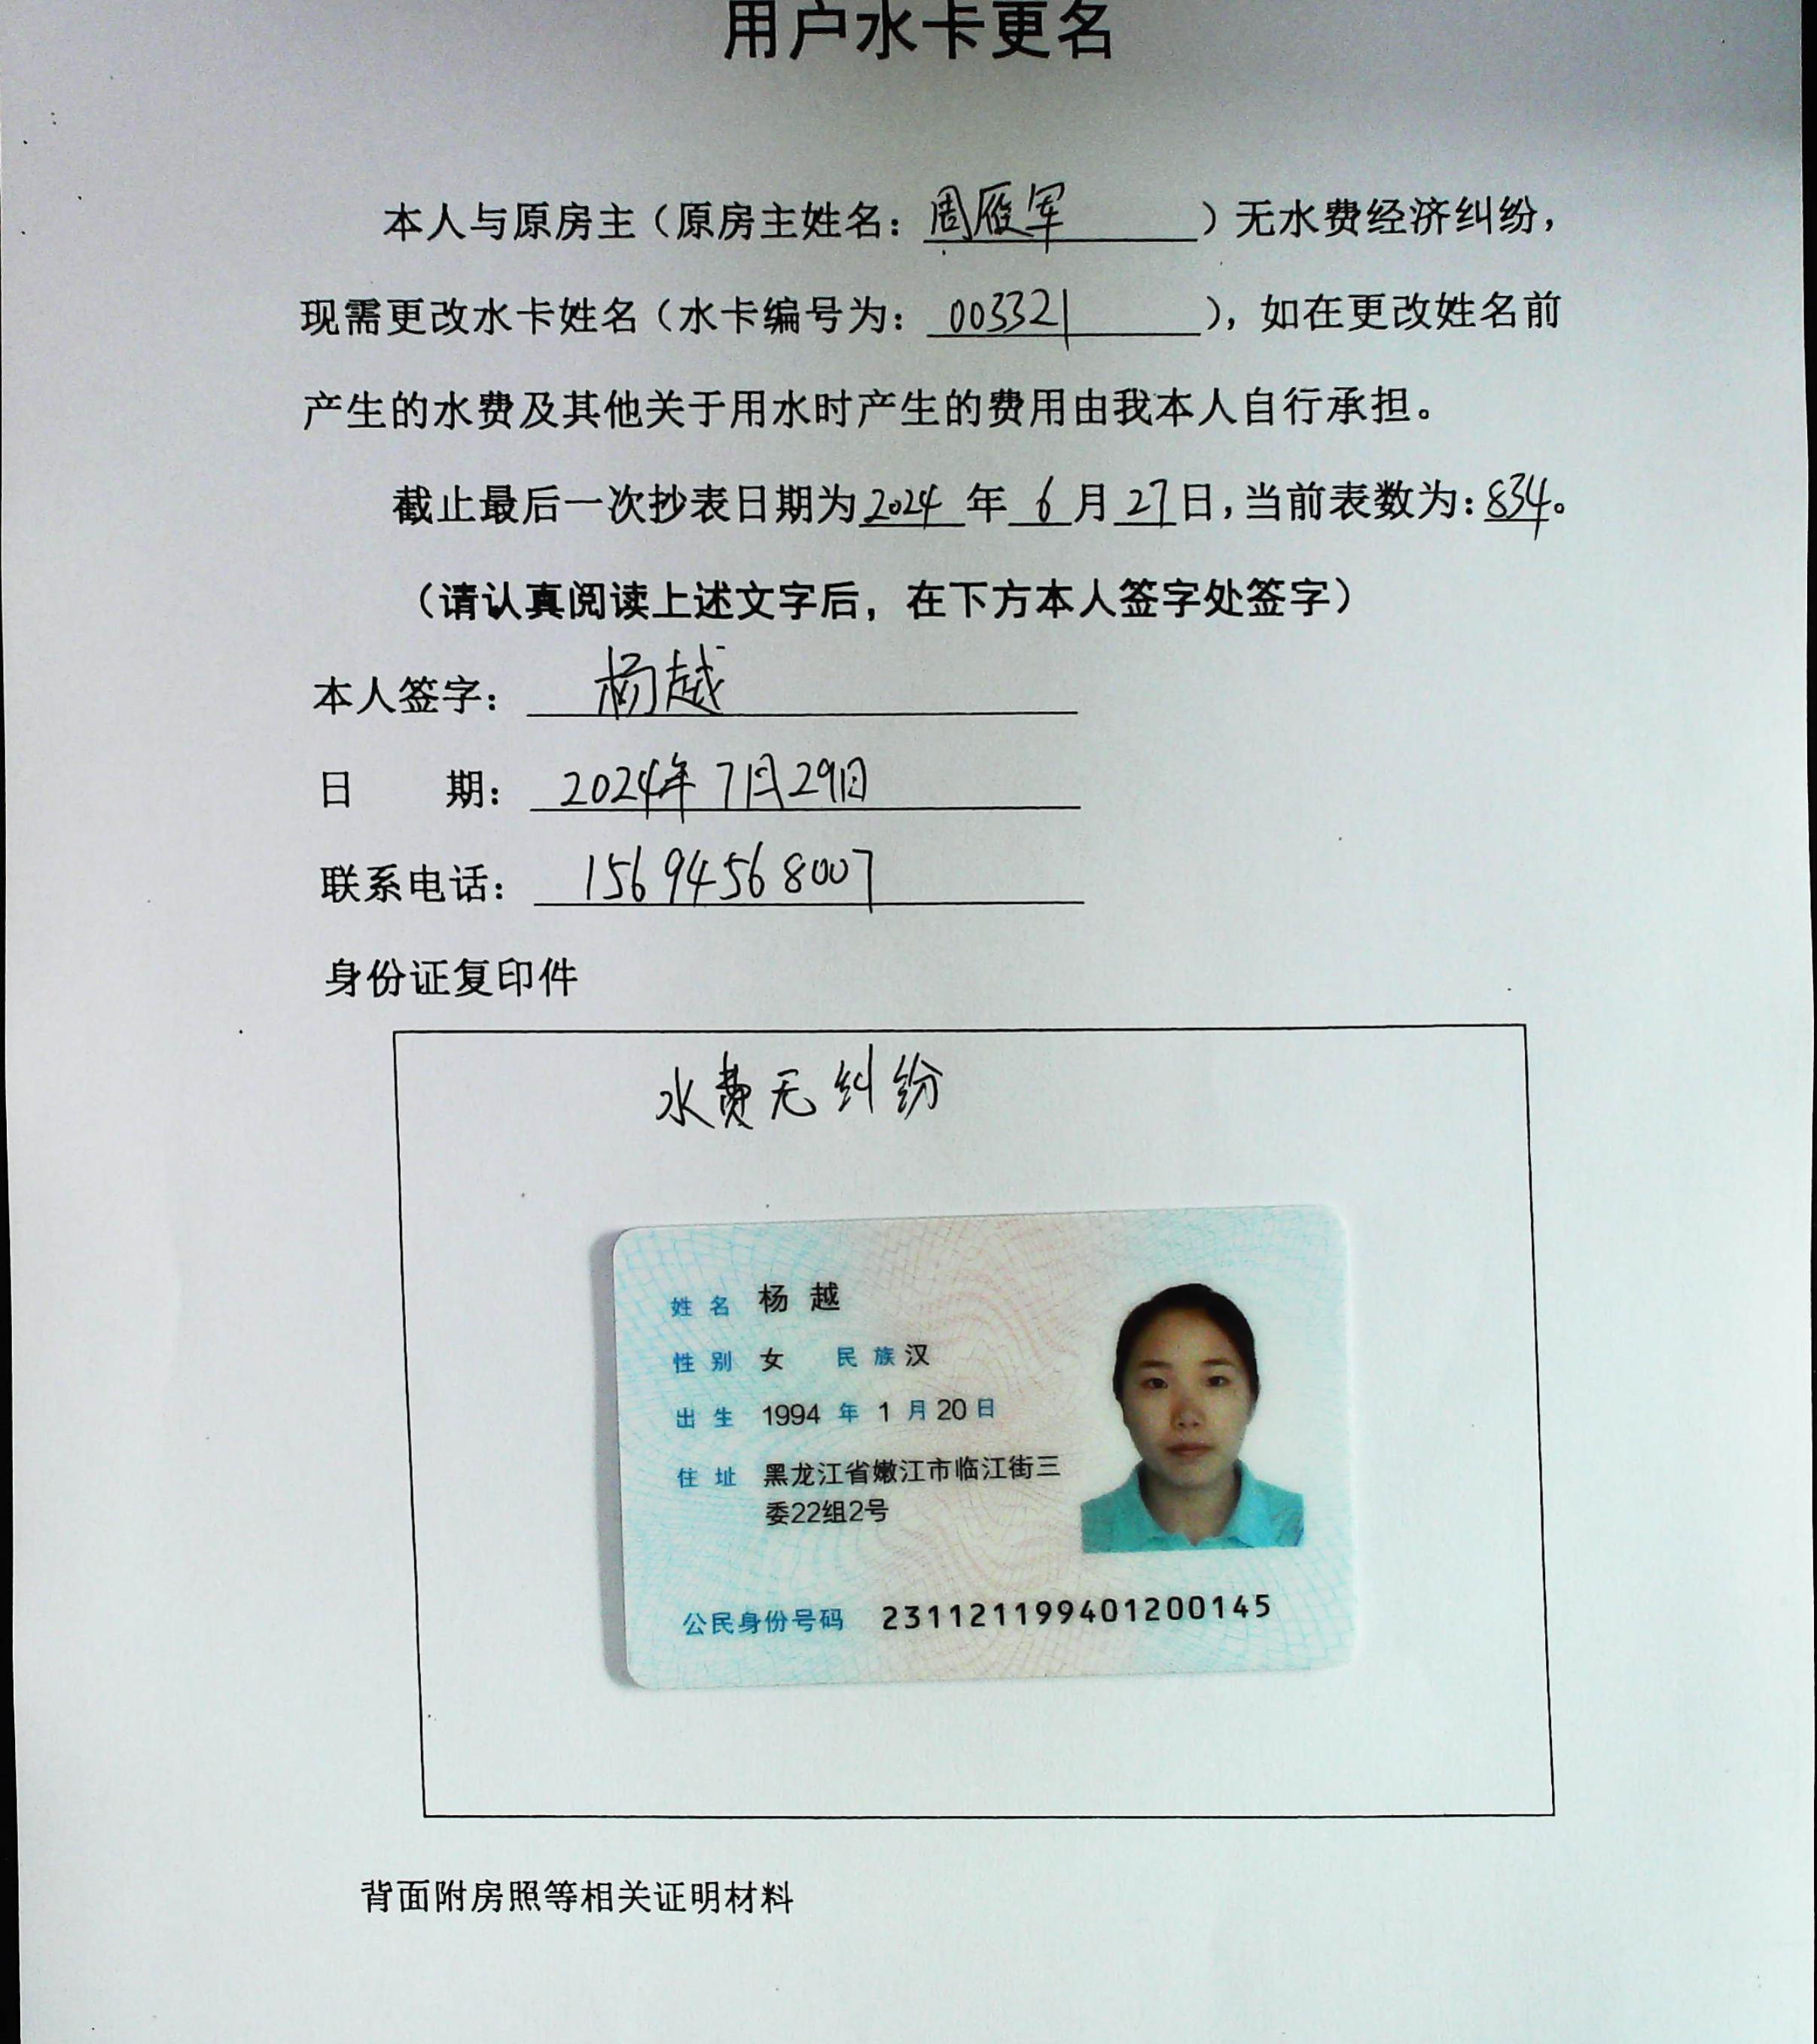 用户水卡更名
本人与原房主（原房主姓名：周雁军）无水费经济纠纷，
现需更改水卡姓名（水卡编号为：003321），如在更改姓名前
产生的水费及其他关于用水时产生的费用由我本人自行承担。
截止最后一次抄表日期为2024年6月27日，当前表数为：834。
（请认真阅读上述文字后，在下方本人签字处签字）
本人签字：杨越
日　　期：2024年7月29日
联系电话：15694568007
身份证复印件
水费无纠纷
姓名 杨越
性别 女 民族 汉
出生 1994 年 1 月 20 日
住址 黑龙江省嫩江市临江街三
委22组2号
公民身份号码 231121199401200145
背面附房照等相关证明材料